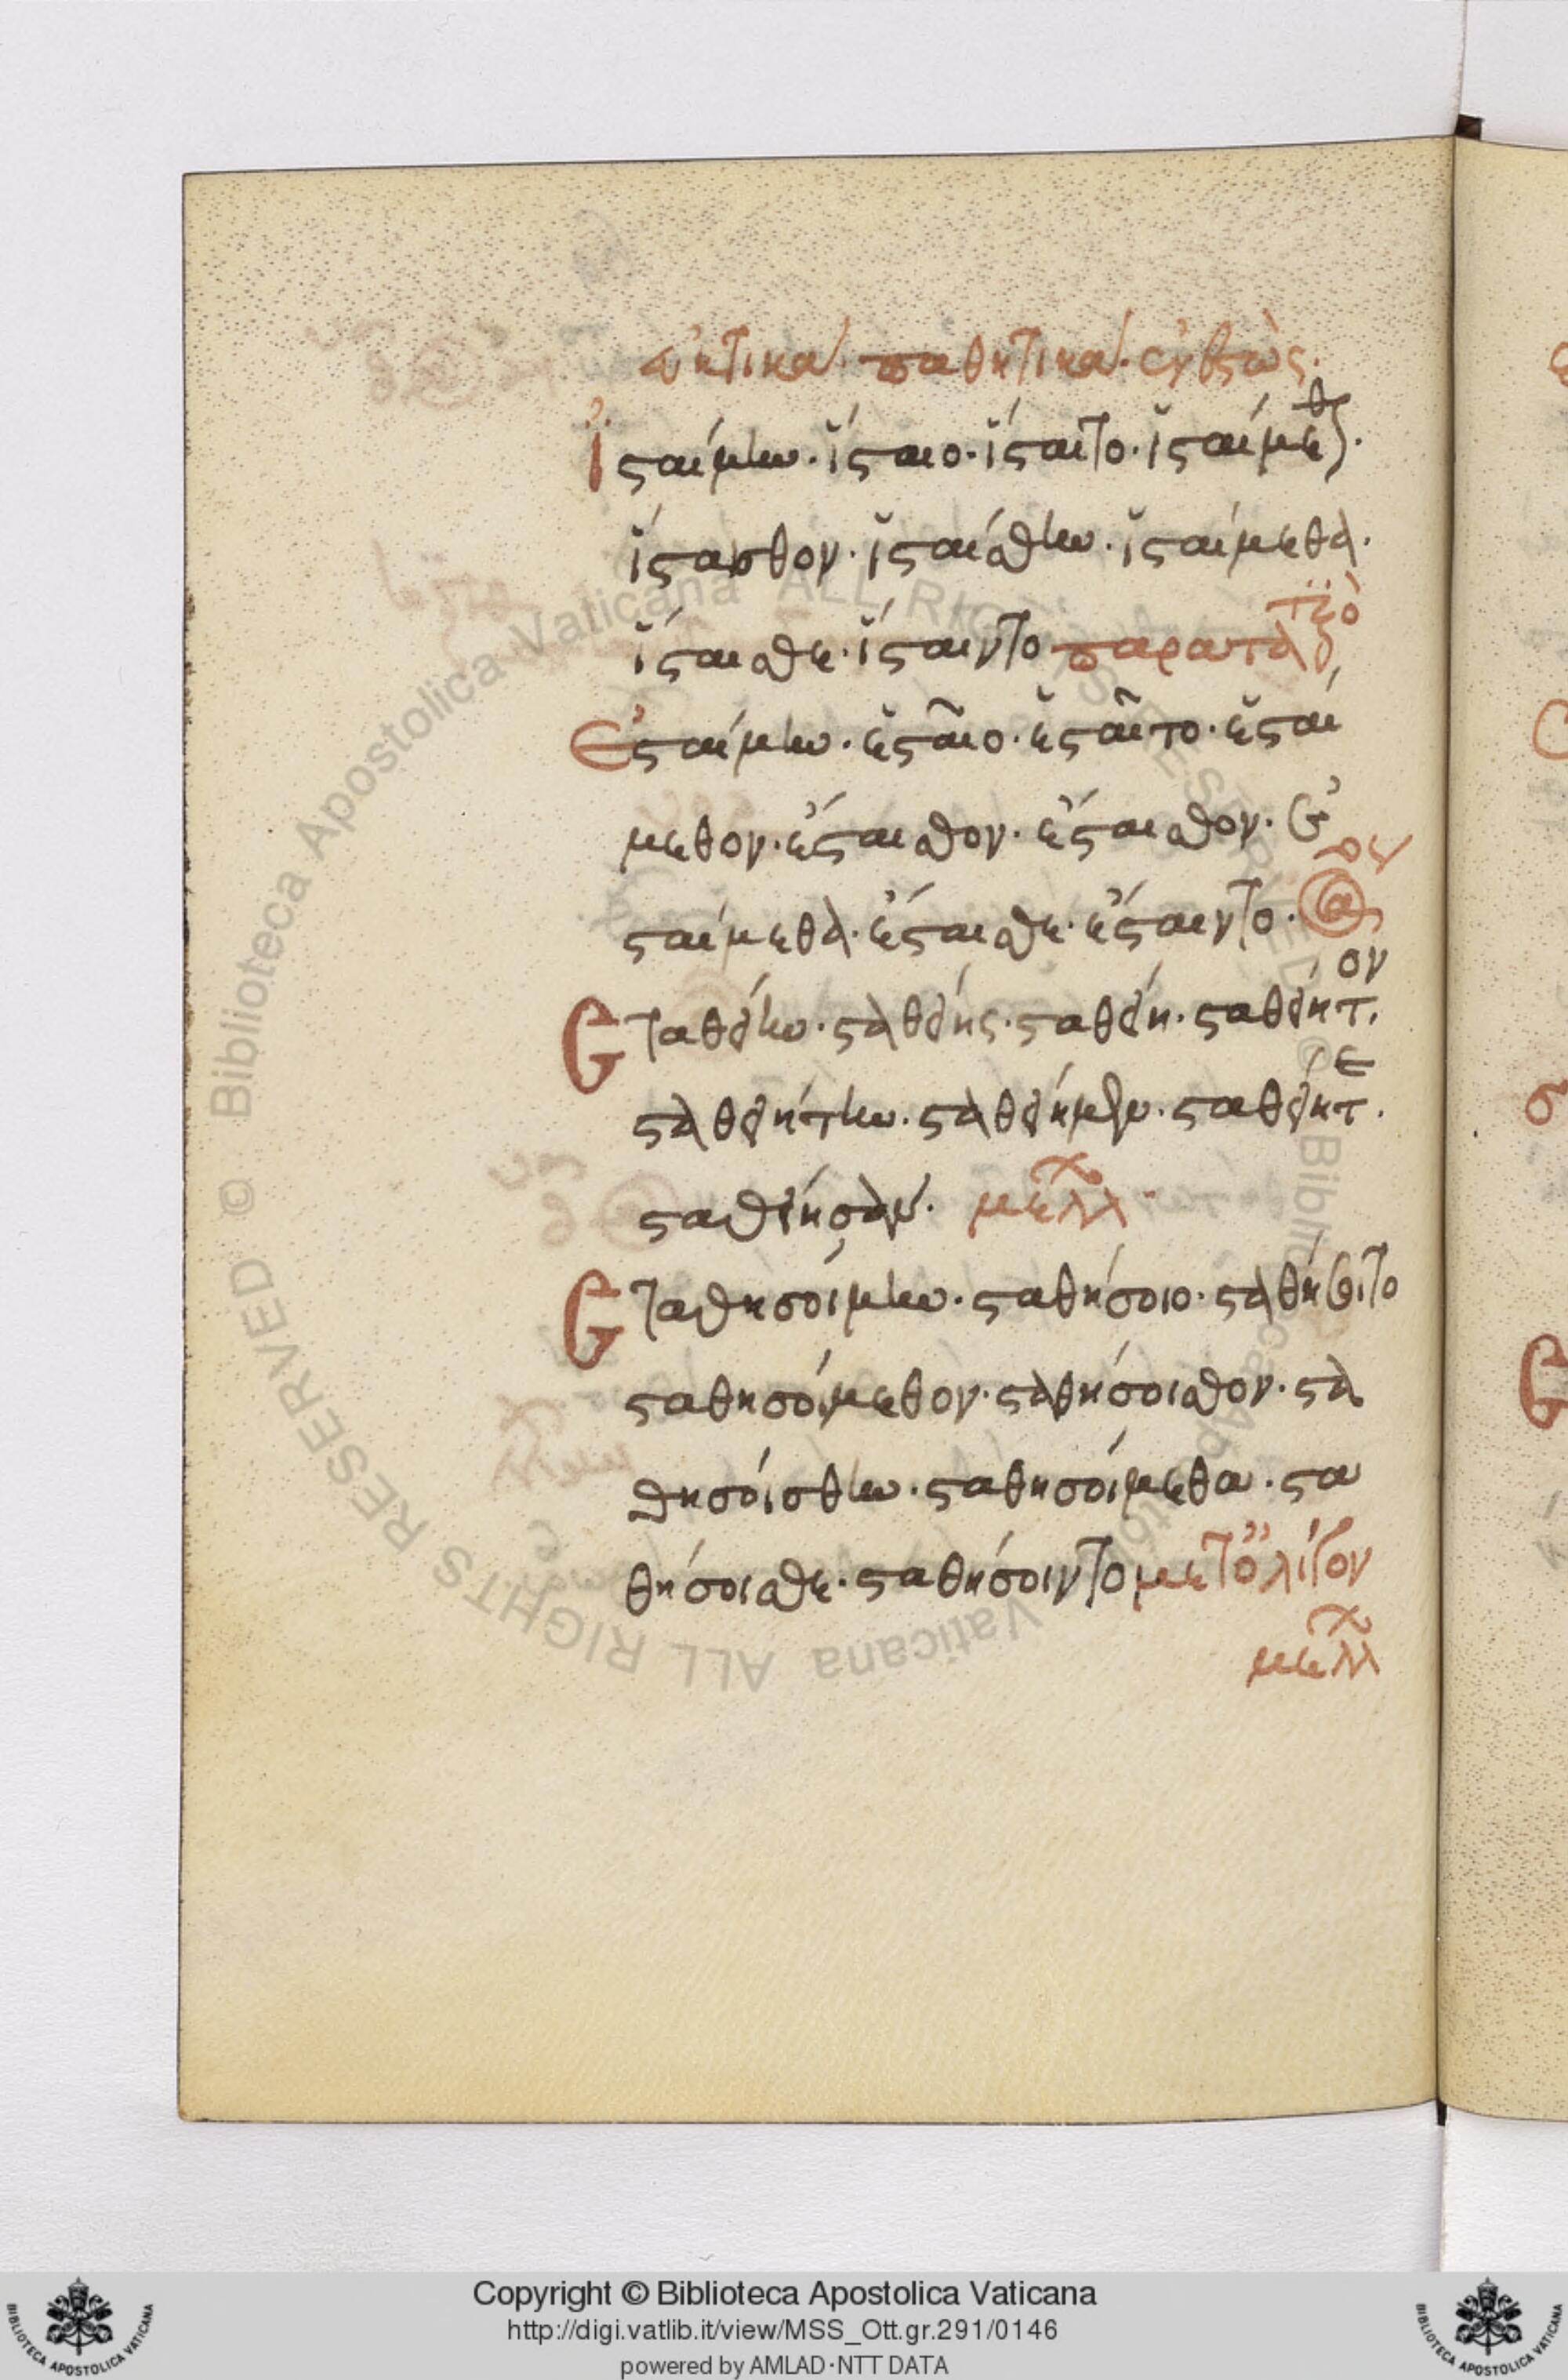 εὐκτικά. παθητικά. ἐνεστώς.
Ἱσταίμην. ἵσταιο. ἵσταιτο. ἱσταίμεθον.
ἵσταισθον. ἱσταίσθην. ἱσταίμεθα.
ἵσταισθε. ἵσταιντο
Ἐσταίμην. ἐσταῖο. ἐσταῖτο. ἐσταί
μεθον. ἔσταισθον. ἔσταισθον. ἐ
σταίμεθα. ἔσταισθε. ἔσταιντο.
Σταθείην. σταθείης. σταθείη. σταθείητον.
σταθειήτην. σταθείημεν. σταθείητε.
σταθείησαν. μέλλ
Σταθησοίμην. σταθήσοιο. σταθήσοιτο
σταθησοίμεθον. σταθήσοισθον. στα
θησοίσθην. σταθησοίμεθα. στα
θήσοισθε. σταθήσοιντο μετ' ὀλίγον
μέλλ
Copyright © Biblioteca Apostolica Vaticana
http://digi.vatlib.it/view/MSS_Ott.gr.291/0146
powered by AMLAD·NTT DATA